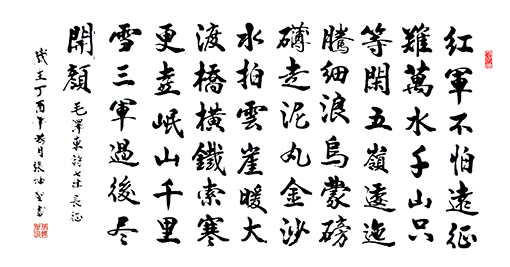 紅軍不怕遠征
難萬水千山只
等閑五嶺逶迤
騰細浪烏蒙磅
礴走泥丸金沙
水拍雲崖暖大
渡橋橫鐵索寒
更喜岷山千里
雪三軍過後尽
開顏
毛澤東詩七律長征
丁酉年